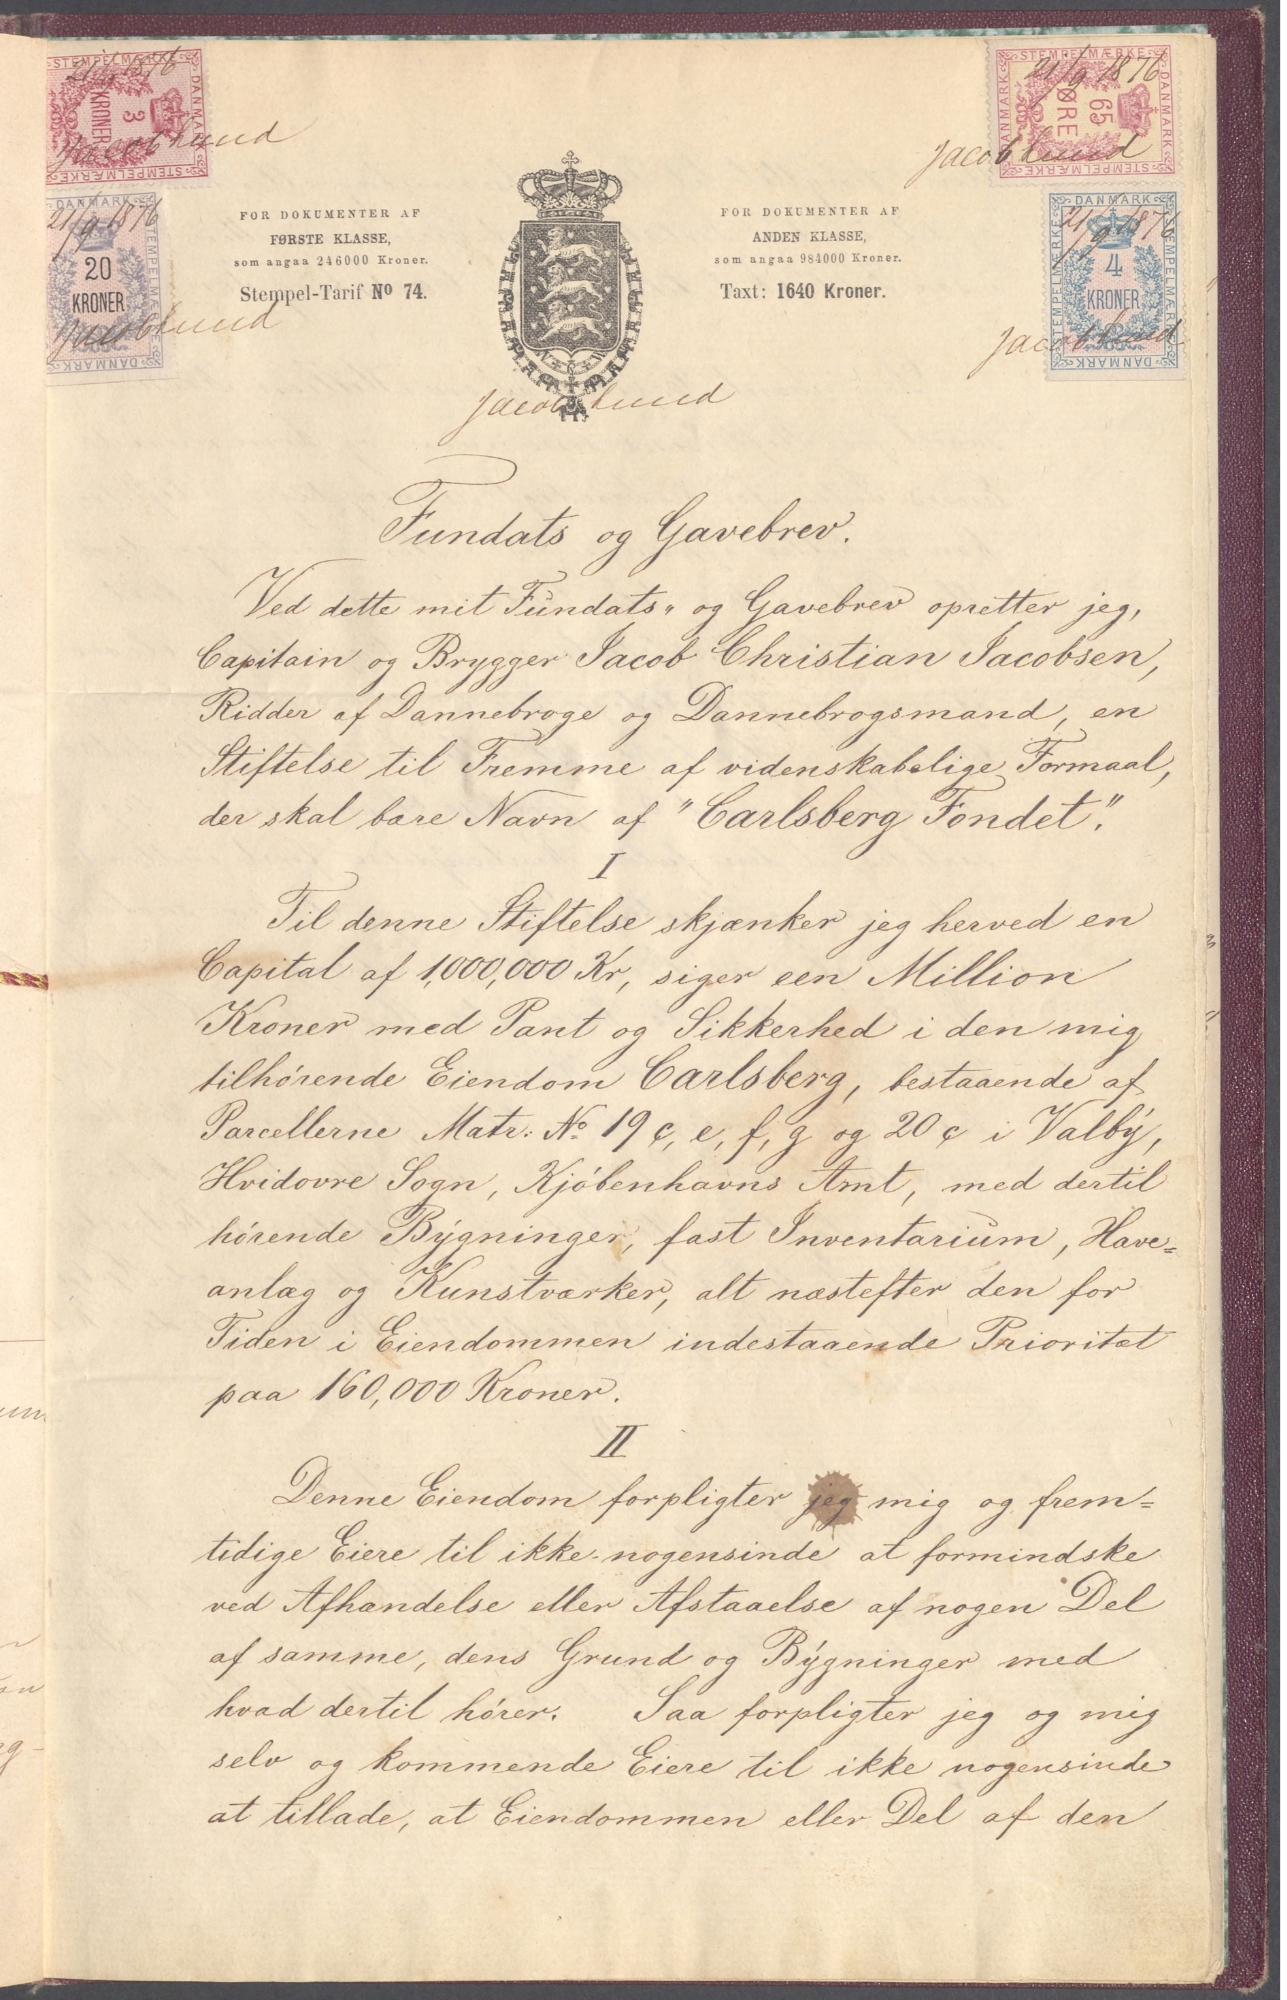 STEMPELMÆRKE
DANMARK
3
KRONER
STEMPELMÆRKE
21/9 1876
Jacoblund
DANMARK
STEMPELMÆRKE
20
KRONER
DANMARK
21/9 1876
Jacoblund
FOR DOKUMENTER AF
FØRSTE KLASSE,
som angaa 246000 Kroner.
Stempel-Tarif No 74.
FOR DOKUMENTER AF
ANDEN KLASSE,
som angaa 984000 Kroner.
Taxt: 1640 Kroner.
STEMPELMÆRKE
DANMARK
65
ØRE
DANMARK
STEMPELMÆRKE
21/9 1876
Jacoblund
DANMARK
STEMPELMÆRKE
4
KRONER
STEMPELMÆRKE
DANMARK
21/9 1876
Jacoblund
Jacoblund
Fundats og Gavebrev.
Ved dette mit Fundats- og Gavebrev opretter jeg,
Capitain og Brygger Jacob Christian Jacobsen,
Ridder af Dannebroge og Dannebrogsmand, en
Stiftelse til Fremme af videnskabelige Formaal,
der skal bære Navn af "Carlsberg Fondet".
I
Til denne Stiftelse skjænker jeg herved en
Capital af 1,000,000 Kr, siger een Million
Kroner med Pant og Sikkerhed i den mig
tilhørende Eiendom Carlsberg, bestaaende af
Parcellerne Matr: No 19 c, e, f, g og 20 c i Valby,
Hvidovre Sogn, Kjøbenhavns Amt, med dertil
hørende Bygninger, fast Inventarium, Have=
anlæg og Kunstværker, alt næstefter den for
Tiden i Eiendommen indestaaende Prioritet
paa 160,000 Kroner.
II
Denne Eiendom forpligter jeg mig og frem=
tidige Eiere til ikke nogensinde at formindske
ved Afhændelse eller Afstaaelse af nogen Del
af samme, dens Grund og Bygninger med
hvad dertil hører. Saa forpligter jeg og mig
selv og kommende Eiere til ikke nogensinde
at tillade, at Eiendommen eller Del af den